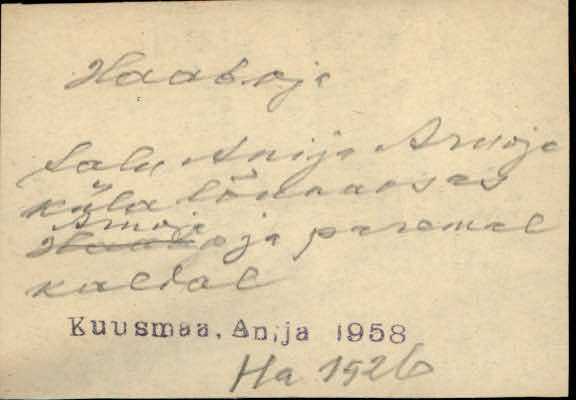 Haaboja
talu Anija Arnoja
küla lõunaosas
Arnoja
Haaboja paremal
kaldal
Kuusmaa, Anija 1958
Ha 1926